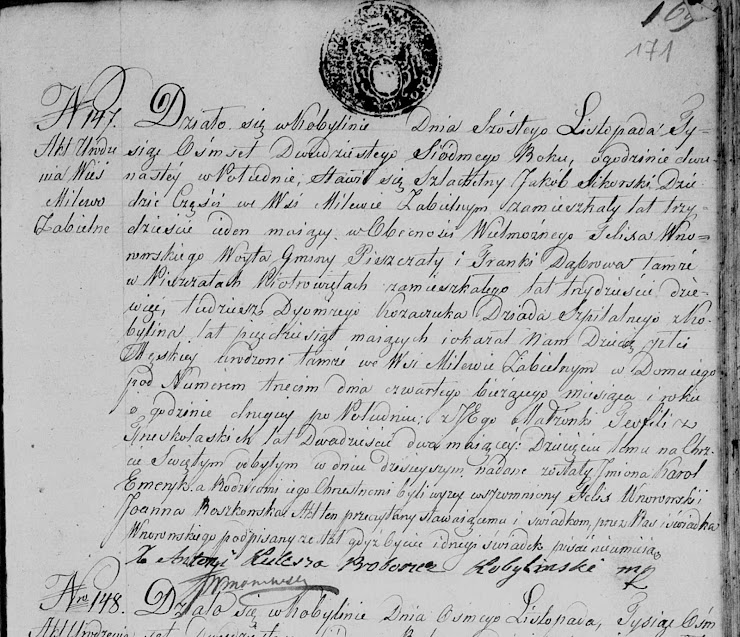 169
171
Nr 147.
Akt Urodze
nia Wieś
Milewo
Zabielne
Działo się w Kobylinie Dnia Szóstego Listopada Ty-
siąc Ośmset Dwudziestego Siódmego Roku, o godzinie dwu
nastéy w Południe, stawił się Szlachetny Jakób Sikorski Dzie
dzic Części we Wsi Milewie Zabielnym zamieszkały lat trzy
dzieście ieden maiący w Obecności Wielmożnego Felixa Wno-
rowskiego Woyta Gminy Piszczaty i Franki Dąbrowa tamże
w Pieszczatach Piotrowiętach zamieszkałego lat trzydzieście dzie-
więć, tudzież Dyonizego Kozaczuka Dziada Szpitalnego z Ko-
bylina lat pięćdziesiąt maiących i okazał Nam Dziecię płci
Męskiey urodzone tamże we Wsi Milewie Zabielnym w Domu iego
pod Numerem trzecim dnia czwartego bieżącego miesiąca i roku
o godzinie drugiey po Południu; z Jego Małżonki Teofili z
lat Dwadzieście dwa maiącey. Dziecięciu temu na Chrz-
cie Świętym odbytym w dniu dzisieyszym nadane zostały Imiona Karol
Emeryk. a Rodzicami iego Chrzestnemi byli wyżey wspomniony Felix Wnorowski
Joanna Roszkowska. Akt ten przeczytany stawaiącemu i świadkom, przez Nas i świadka
Wnorowskiego podpisany został gdyż oyciec i drugi świadek pisać nieumieią
X Antoni Kulesza Proboszcz Kobyliński mp
Wnorowski
Nro 148. Działo się w Kobylinie Dnia Osmego Listopada, Tysiąc Ośm
Akt Urodzenia set